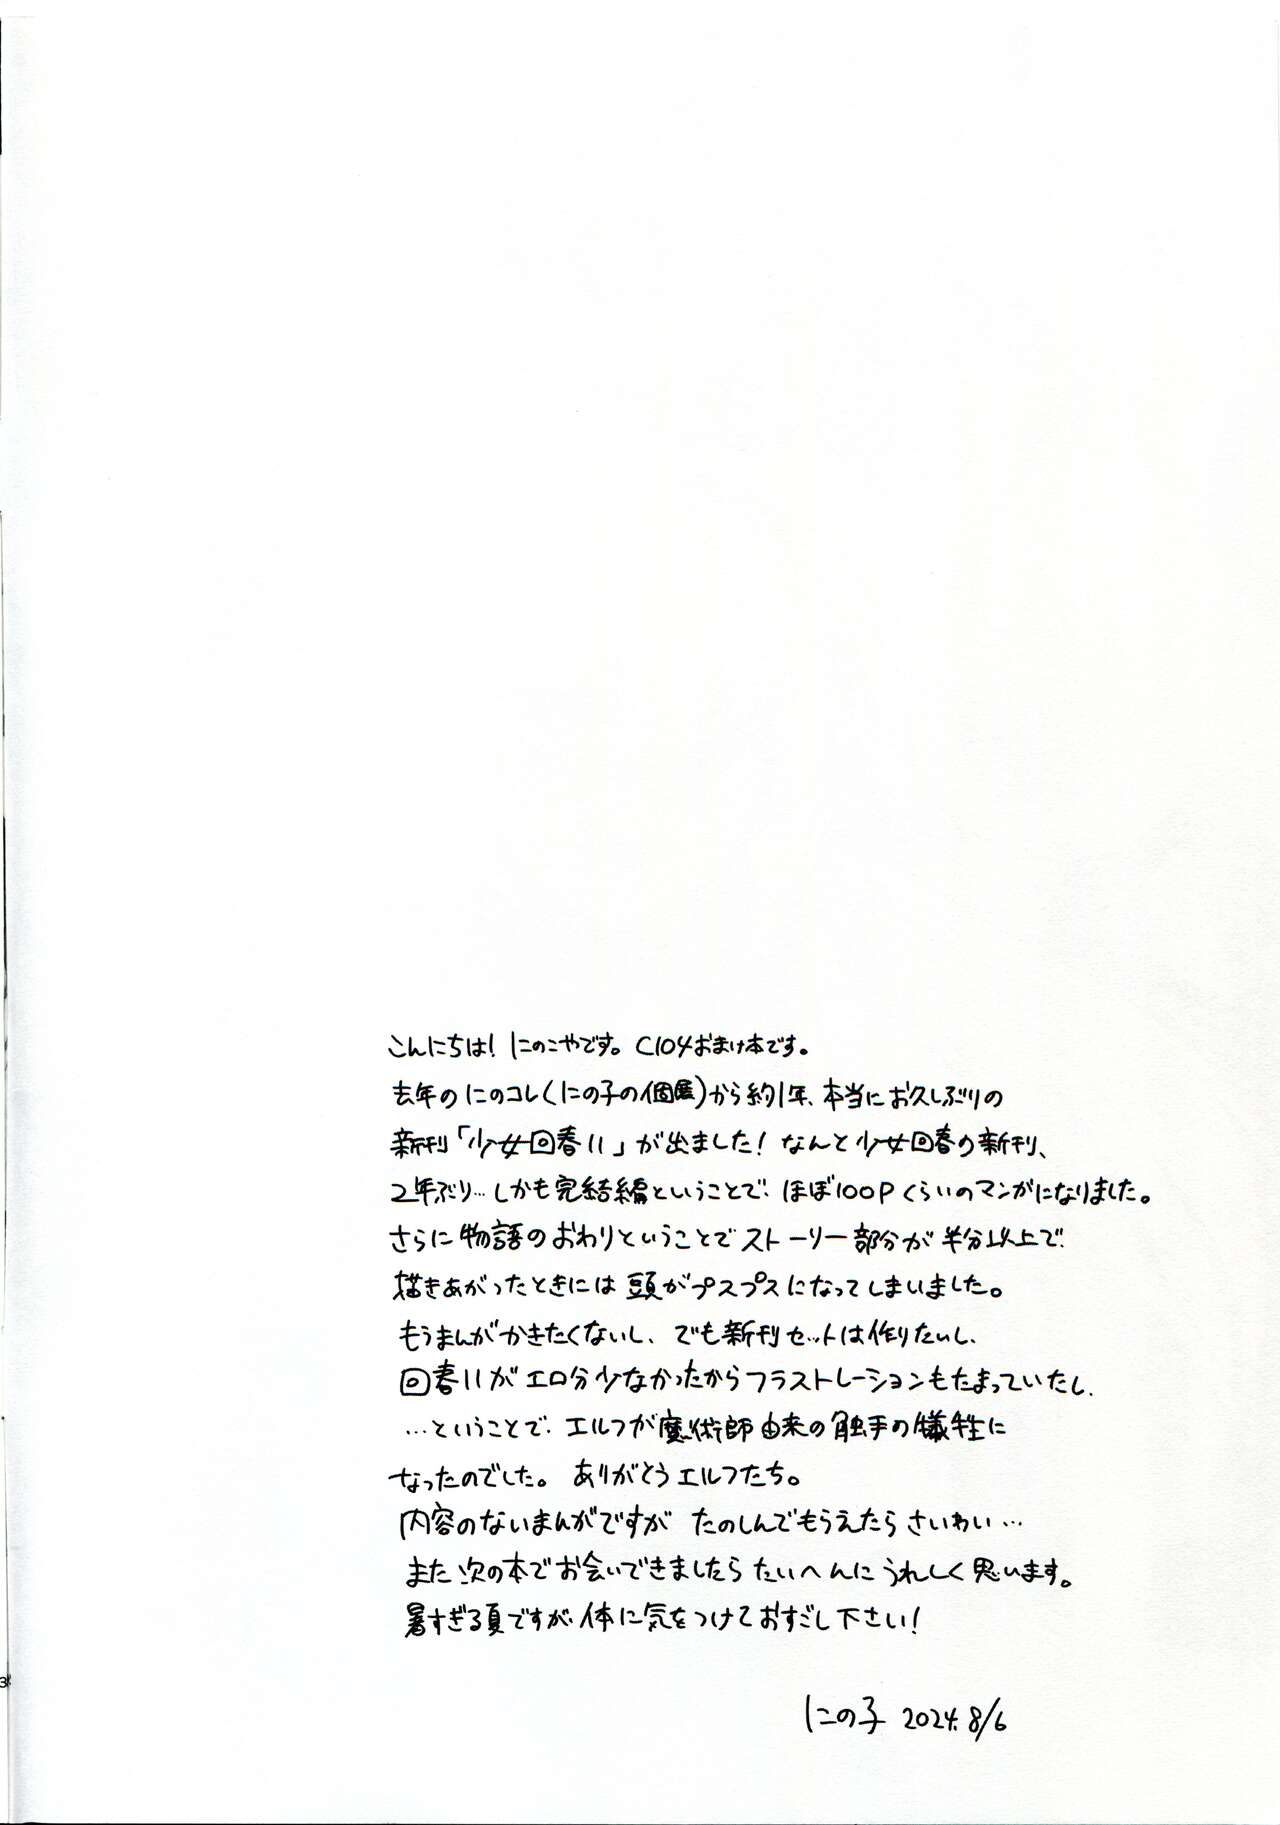 こんにちは！にのこやです。C104おまけ本です。
去年のにのコレ(にの子の個展)から約1年、本当にお久しぶりの
新刊「少女回春11」が出ました！なんと少女回春の新刊、
2年ぶり…しかも完結編ということで、ほぼ100Pくらいのマンガになりました。
さらに物語のおわりということでストーリー部分が半分以上で、
描きあがったときには頭がプスプスになってしまいました。
もうまんがかきたくないし、でも新刊セットは作りたいし、
回春11がエロ分少なかったからフラストレーションもたまっていたし、
…ということで、エルフが魔術師由来の触手の犠牲に
なったのでした。ありがとうエルフたち。
内容のないまんがですが たのしんでもらえたらさいわい…
また次の本でお会いできましたらたいへんにうれしく思います。
暑すぎる夏ですが、体に気をつけておすごし下さい！
にの子 2024.8/6